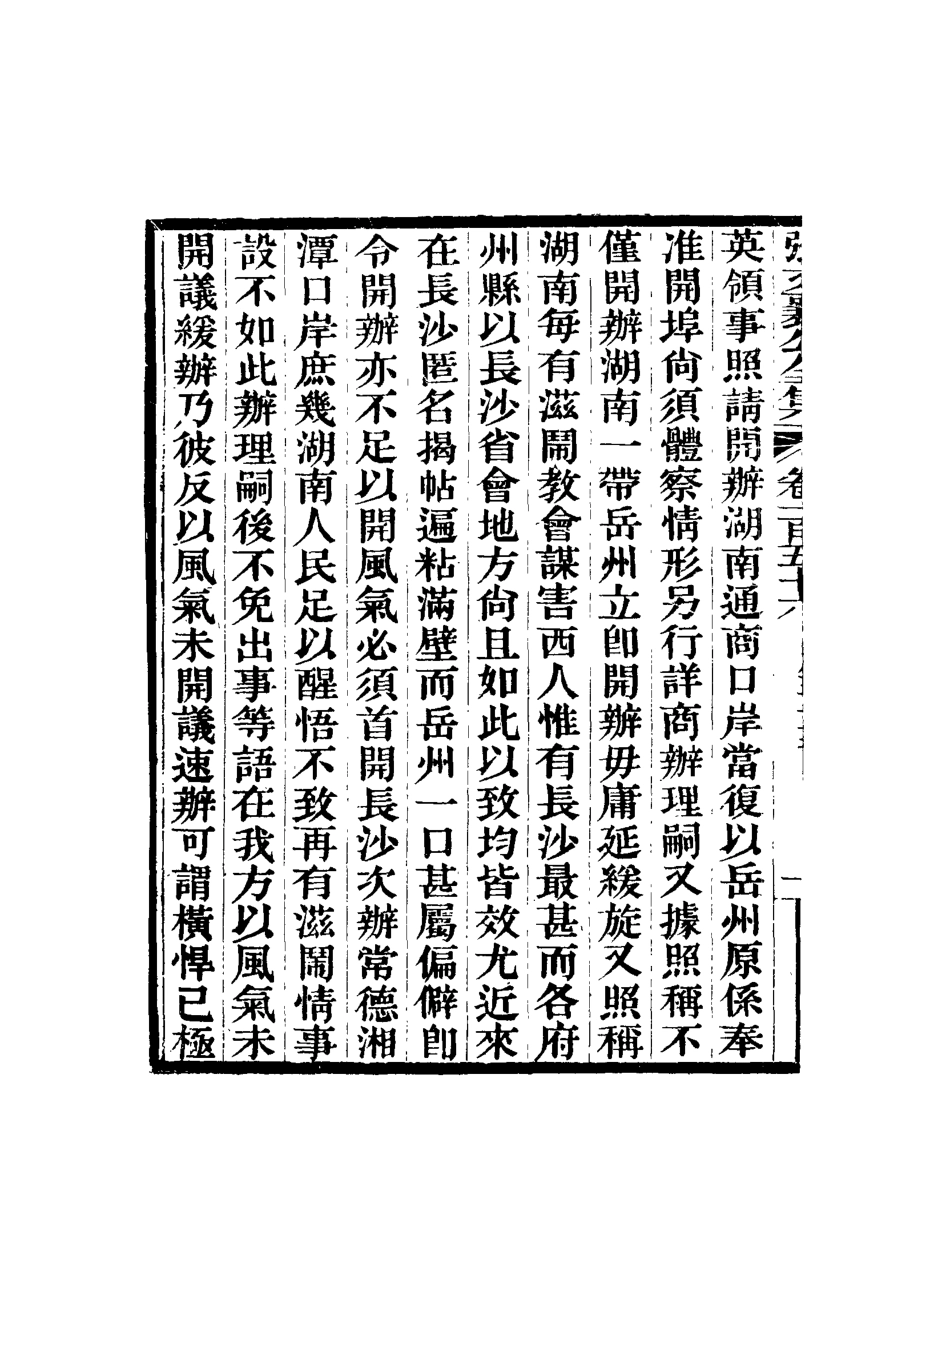 張文襄公全集 卷一百五十六
英領事照請開辦湖南通商口岸當復以岳州原係奉
准開埠尙須體察情形另行詳商辦理嗣又據照稱不
僅開辦湖南一帶岳州立卽開辦毋庸延緩旋又照稱
湖南每有滋鬧教會謀害西人惟有長沙最甚而各府
州縣以長沙省會地方尙且如此以致均皆效尤近來
在長沙匿名揭帖遍粘滿壁而岳州一口甚屬偏僻卽
令開辦亦不足以開風氣必須首開長沙次辦常德湘
潭口岸庶幾湖南人民足以醒悟不致再有滋鬧情事
設不如此辦理嗣後不免出事等語在我方以風氣未
開議緩辦乃彼反以風氣未開議速辦可謂橫悍已極